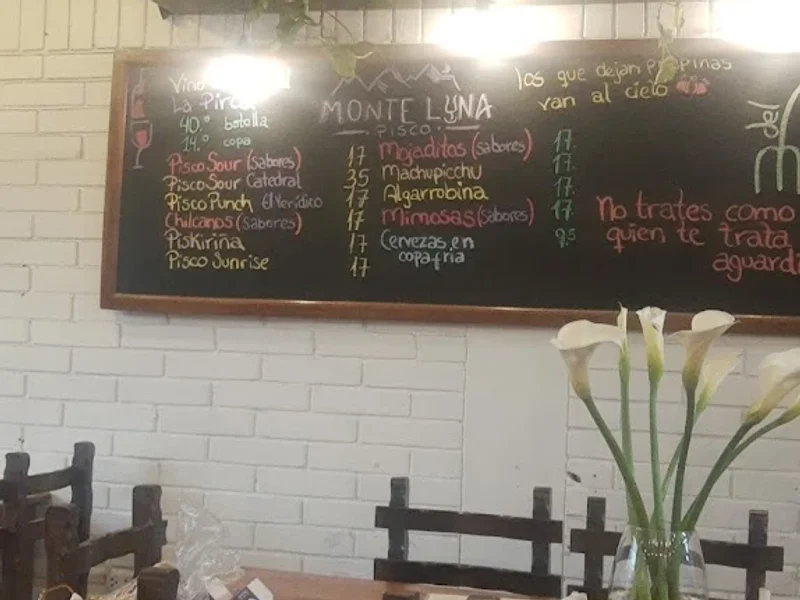 Vino
La Pirca
40.º botella
14.º copa
Pisco Sour (sabores) 17
Pisco Sour Catedral 35
Pisco Punch El Verídico 17
Chilcanos (sabores) 17
Piskiriña 17
Pisco Sunrise 17
MONTE LUNA
PISCO
Mojaditos (sabores) 17.
Machupicchu 17.
Algarrobina 17.
Mimosas (sabores) 17.
Cervezas en 9.5
copa fria
los que dejan propinas
van al cielo
del
No trates como
quien te trata
aguardi